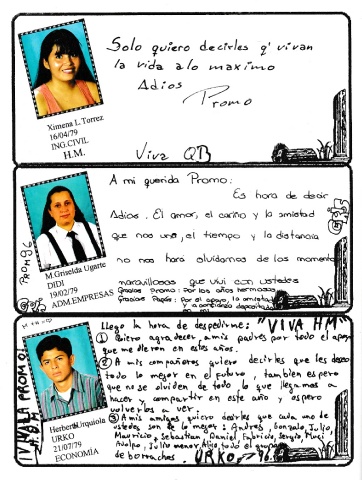 Solo quiero decirles q' vivan
la vida a lo maximo
Adios
Promo
Ximena L. Torrez
16/04/79
ING.CIVIL
H.M.
Viva QB
A mi querida Promo:
Es hora de decir
Adios. El amor, el cariño y la amistad
que nos une, el tiempo y la distancia
no nos hará olvidarnos de los momentos
maravillosos que viví con ustedes
Gracias Promo: Por los años hermosos
Gracias Papás: Por el apoyo, la amistad
y a confianza depositada
PROM 96
M.Griselda Ugarte
DIDI
19/02/79
ADM.EMPRESAS
Llego la hora de despedirme: "VIVA HM"
① Quiero agradecer a mis padres por todo el apoyo
que me dieron en estos años.
② A mis compañeros quiero decirles que les deseo
todo lo mejor en el futuro, tambien espero
que no se olviden de todo lo que llegamos a
hacer y compartir en este año y espero
volverlos a ver.
③ A mis amigos quiero decirles que cada uno de
ustedes son de lo mejor: Andrés, Gonzalo, Julio,
Mauricio, Sebastian, Daniel, Fabricio, Sergio,
Adolfo, Julio menor, todo el grupo
de borrachos. URKO 96
VIVA LA PROMO
Herbert Urquiola
URKO
21/07/79
ECONOMÍA